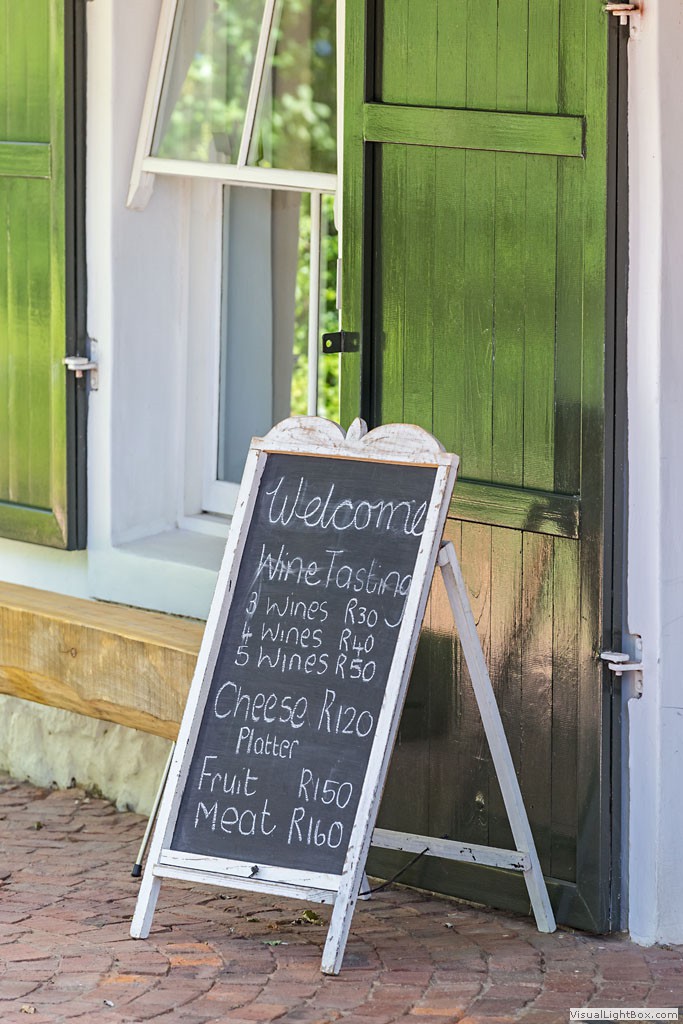 Welcome
Wine Tasting
3 Wines R30
4 Wines R40
5 Wines R50
Cheese R120
Platter
Fruit R150
Meat R160
VisualLightBox.com